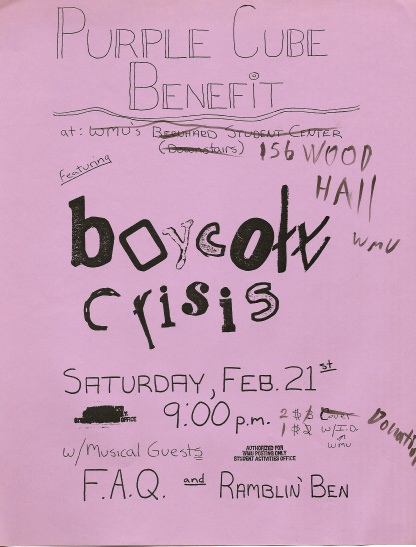 PURPLE CUBE
BENEFIT
at: WMU's BERNHARD STUDENT CENTER
(Downstairs) 156 WOOD
HALL
WMU
Featuring
boycott
crisis
SATURDAY, FEB. 21st
OFFICE
9:00 p.m. 2 $3 Cover
1 $2 w/I.D.
or
WMU
Donation
w/Musical Guests
AUTHORIZED FOR
WMU POSTING ONLY
STUDENT ACTIVITIES OFFICE
F.A.Q. and RAMBLIN' BEN